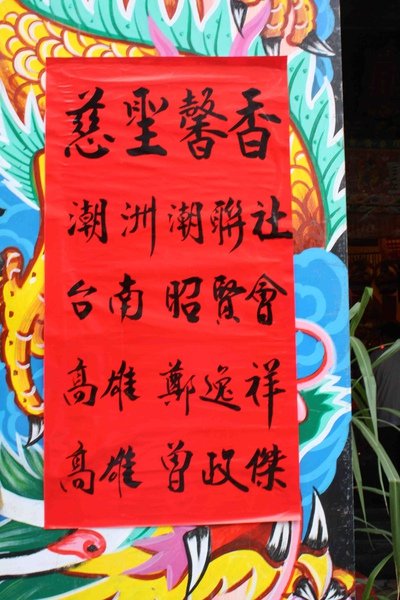 慈聖馨香
潮洲潮聯社
台南昭賢會
高雄鄭逸祥
高雄曾政傑